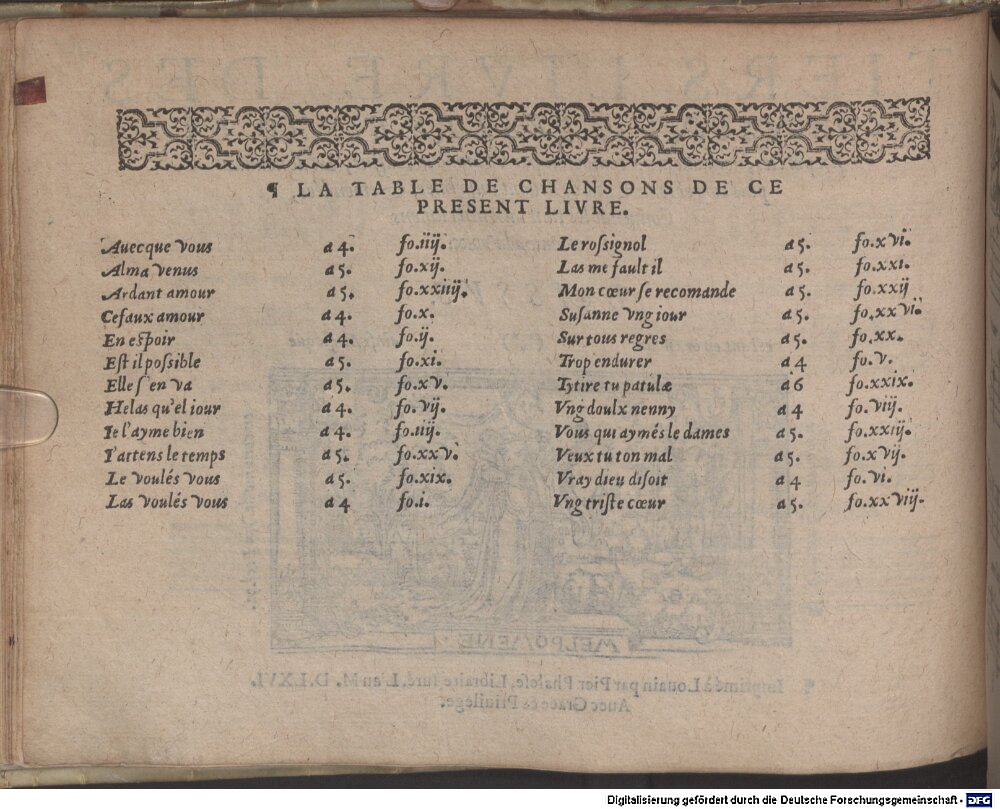 ¶ LA TABLE DE CHANSONS DE CE
PRESENT LIVRE.
Auecque vous a 4. fo.iiij.
Alma venus a 5. fo.xij.
Ardant amour a 5. fo.xxiiij.
Ce faux amour a 4. fo.x.
En espoir a 4. fo.ij.
Est il possible a 5. fo.xi.
Elle s'en va a 5. fo.xv.
Helas qu'el iour a 4. fo.vij.
Ie l'ayme bien a 4. fo.iiij.
I'attens le temps a 5. fo.xxv.
Le voulés vous a 5. fo.xix.
Las voulés vous a 4 fo.i.
Le rossignol a 5. fo.xvi.
Las me fault il a 5. fo.xxi.
Mon cœur se recomande a 5. fo.xxij
Susanne vng iour a 5. fo.xxvi.
Sur tous regres a 5. fo.xx.
Trop endurer a 4 fo.v.
Tytire tu patulæ a 6 fo.xxix.
Vng doulx nenny a 4 fo.viij.
Vous qui aymés le dames a 5. fo.xxiij.
Veux tu ton mal a 5. fo.xvij.
Vray dieu disoit a 4 fo.vi.
Vng triste cœur a 5. fo.xxviij.
MELPOMENE
Imprimé à Louain par Pier Phalese, Libraire Iuré. L'an M. D. LXVI.
Auec Grace & Priuilege.
Digitalisierung gefördert durch die Deutsche Forschungsgemeinschaft - DFG